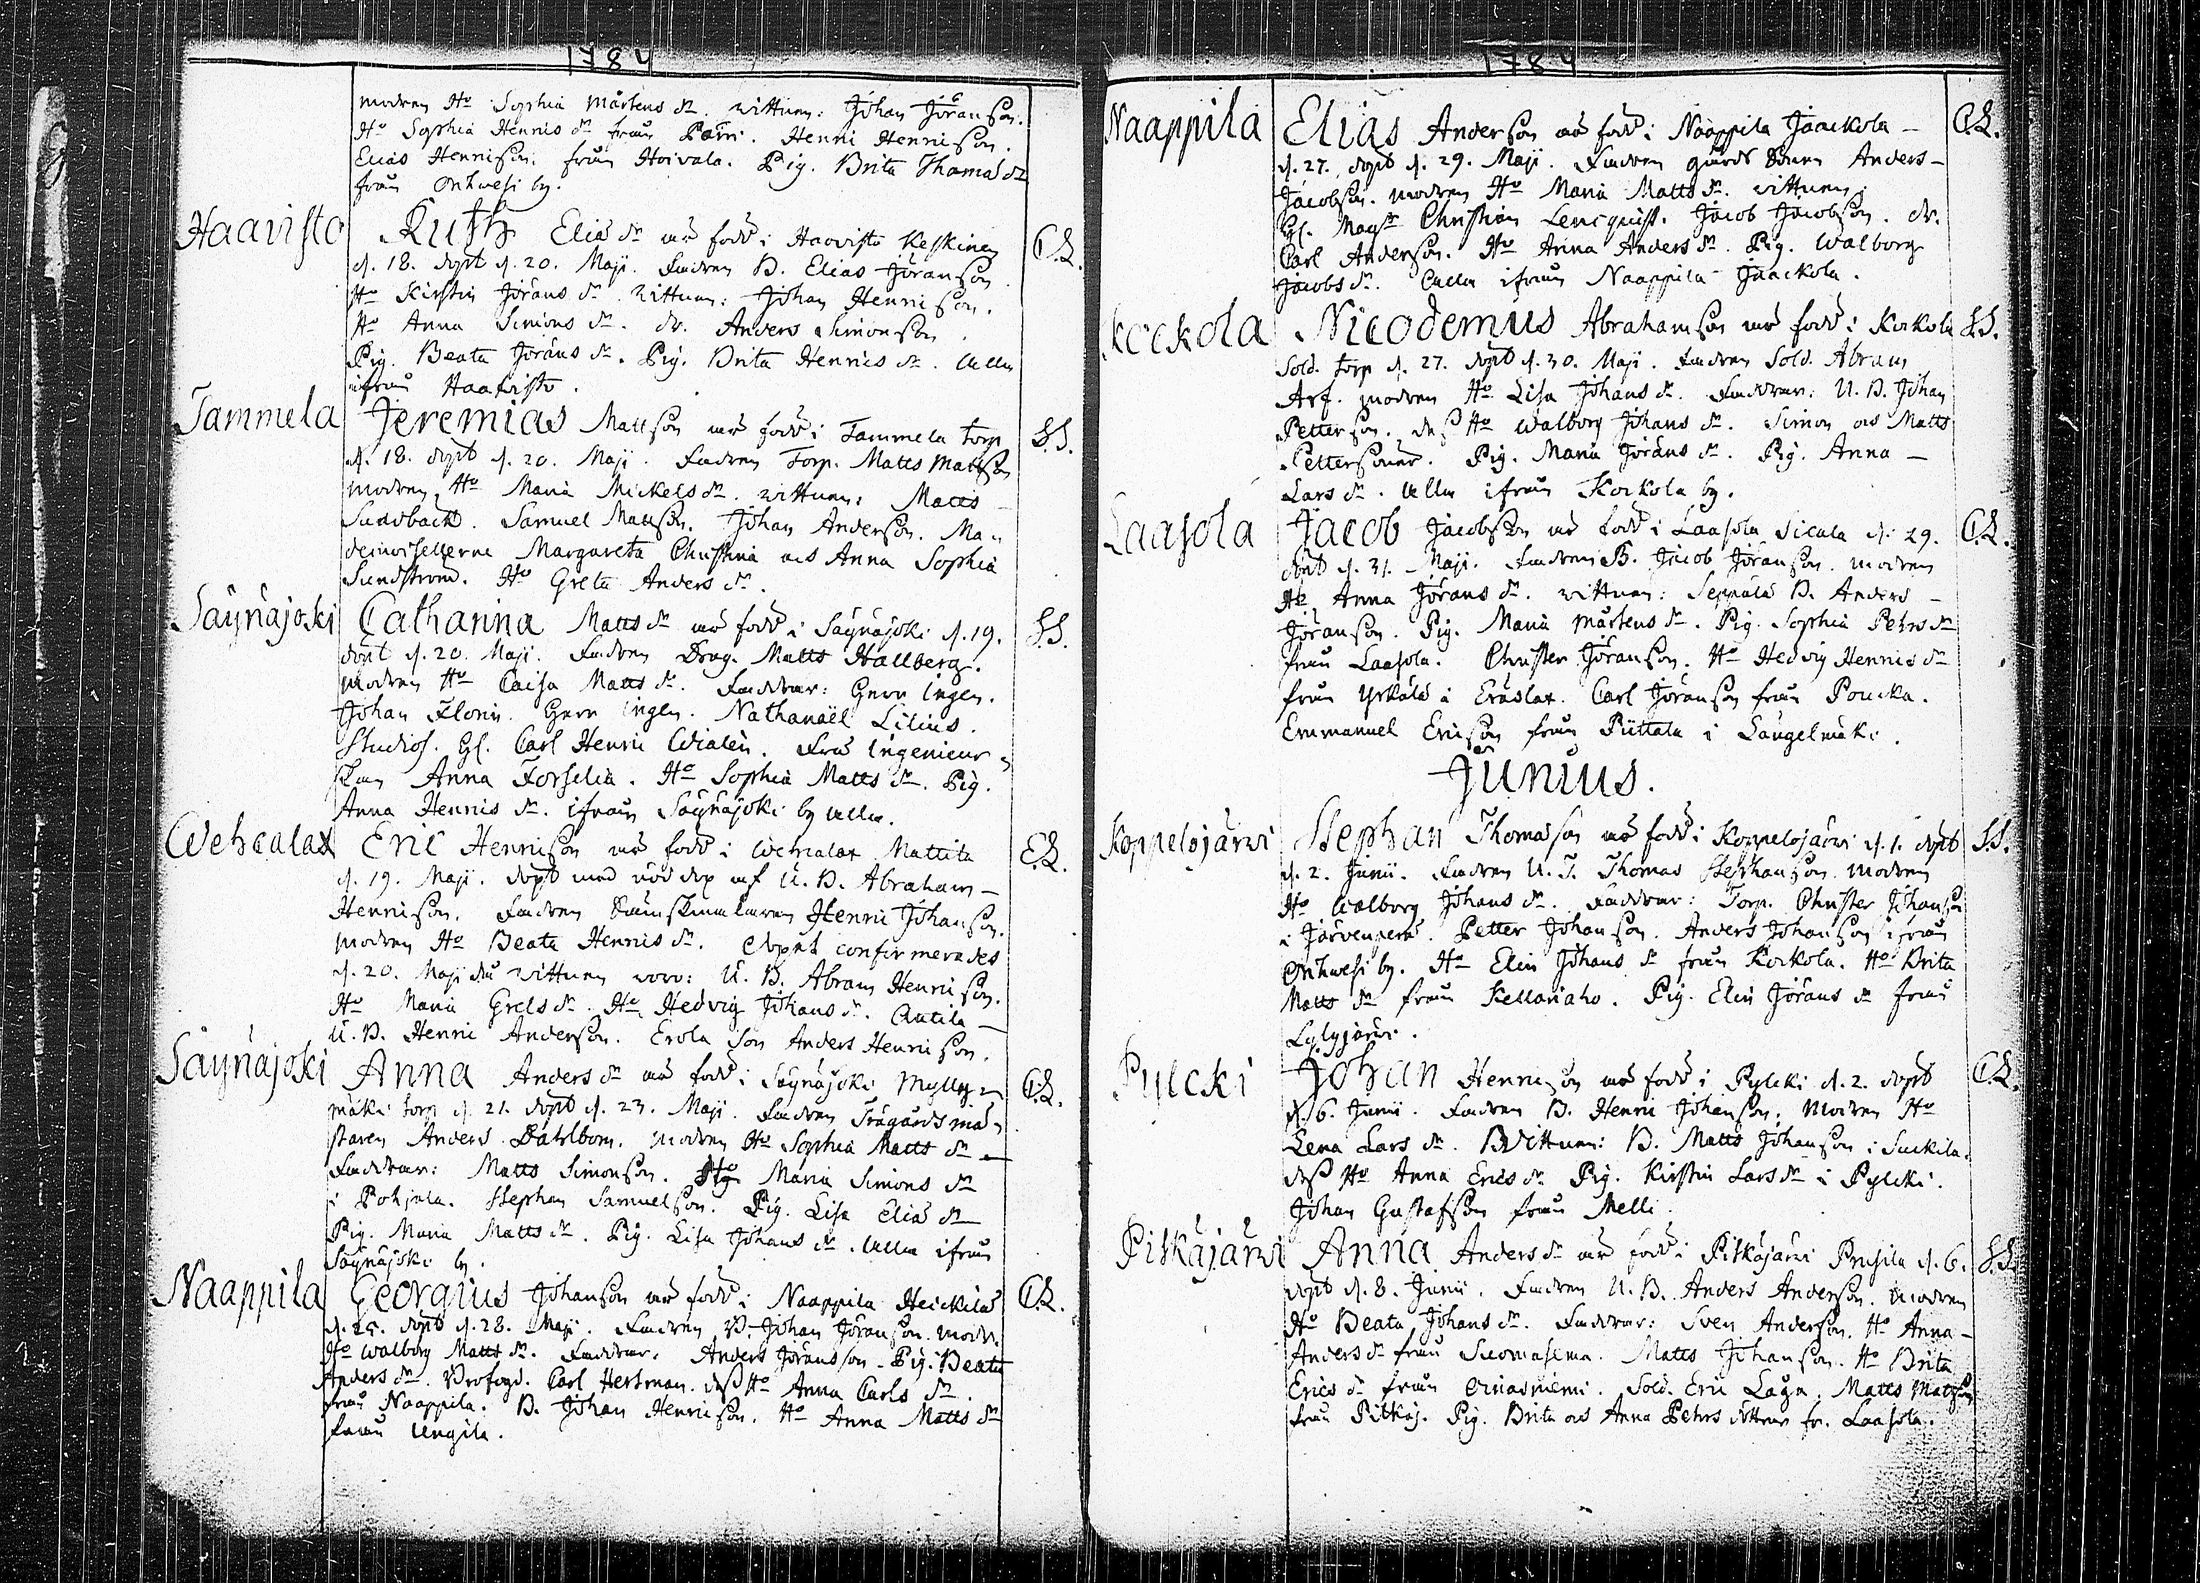 1784
modren Ho Sophia Mårtens dr. vittnen: Johan Jöranson.
Ho Sophia Henrics dr från Pätri. Henric Henricson.
Elias Henricson från Hoivala. Pig. Brita Thomas dr
från Onkwesi by.
Haavisto Ruth Elias dr är född i Haavisto Keskinen C.L.
d. 18. döpt d. 20. Maji. Fadren B. Elias Jöranson
Ho Kirstin Jörans dr. vittnen: Johan Henricson.
Ho Anna Simons dr. dr. Anders Simonson
Pig. Beata Jörans dr. Pig. Brita Henrics dr. alla
ifrån Haavisto.
Tammela Jeremias Mattson är född i Tammela torp S.S.
d. 18. döpt d. 20. Maji. Fadren Torp. Matts Mattson
modren Ho Maria Mickels dr. vittnen: Matts
Sundbäck. Samuel Mattson. Johan Anderson. Ma-
demoisellerne Margareta Christina och Anna Sophia
Sundström. Ho Greta Anders dr.
Säynäjoki Catharina Matts dr är född i Säynäjoki d. 19. S.S.
döpt d. 20. Maji. Fadren Drag. Matts Hallberg.
modren Ho Caisa Matts dr. Faddrar: Herr Ingen.
Johan Florin. Herr Ingen. Nathanaël Lilius.
Studios. Hl. Carl Henric Wialen. Fru Ingenieur-
skan Anna Forselia. Ho Sophia Matts dr. Pig.
Anna Henrics dr. ifrån Säynäjoki by alla.
Wehcalax Eric Henricson är född i Wehcalax Mattila C.L.
d. 19. Maji. döpt med nöddop af U. B. Abraham
Henricson. Fadren Henric Johanson.
modren Ho Beata Henrics dr. dopet confirmerades
d. 20. Maji då vittnen voro: U. B. Abram Henricson.
Ho Maria Grels dr. Ho Hedvig Johans dr. Antila
U. B. Henric Anderson. Erola son Anders Henricson.
Säynäjoki Anna Anders dr är född i Säynäjoki Mylly- C.L.
mäki torp d. 21. döpt d. 23. Maji. Fadren Trägårdsmä-
staren Anders Dahlbom. modren Ho Sophia Matts dr
Faddrar: Matts Simonson. Ho Maria Simons dr
i Pohjala. Stephan Samuelson. Pig. Lisa Elias dr
Pig. Maria Matts dr. Pig. Lisa Johans dr. alla ifrån
Säynäjoki by.
Naappila Georgius Johanson är född i Naappila Heickilä C.L.
d. 25. döpt d. 28. Maji. Fadren B. Johan Jöranson. modr.
Ho Walborg Matts dr. Faddrar: Anders Jöransson. Pig. Beata
Anders dr. Brofogd. Carl Hertman. dess Ho Anna Carls dr.
från Naappila. B. Johan Henricson. Ho Anna Matts dr
från Ungila.
1784
Naappila Elias Anderson är född i Naappila Jaackola C.L.
d. 27. döpt d. 29. Maji. Fadren gårds Sonen Anders
Jacobson. modren Ho Maria Matts dr. vittnen:
Hl. Magr Christian Lencquist. Jacob Jacobson. dr.
Carl Anderson. Ho Anna Anders dr. Pig. Walborg
Jacobs dr. alla ifrån Naappila Jaackola.
Kockola Nicodemus Abrahamson är född i Kockola S.S.
Sold. torp d. 27. döpt d. 30. Maji. Fadren Sold. Abram
Arf. modren Ho Lisa Johans dr. Faddrar: U. B. Johan
Petterson. dess Ho Walborg Johans dr. Simon och Matts
Pettersöner. Pig. Maria Jörans dr. Pig. Anna
Lars dr. alla ifrån Kockola by.
Laasola Jacob Jacobson är född i Laasola Sicala d. 29. C.L.
döpt d. 31. Maji. Fadren B. Jacob Jöranson. modren
Ho Anna Jörans dr. vittnen: Seppälä B. Anders
Jöranson. Pig. Maria Mårtens dr. Pig. Sophia Pehrs dr
från Laasola. Christer Jöranson. Ho Hedvig Henrics dr
från Yrkälä i Eräslax. Carl Jöranson från Poucka.
Emmanuel Ericson från Püttala i Längelmäki.
Junius.
Koppelojärwi Stephan Thomason är född i Koppelojärwi d. 1. döpt S.S.
d. 2. Junii. Fadren U. T. Thomas Stephanson. Modren
Ho Walborg Johans dr. Faddrar: Torp. Christer Johanson
i Järvenperä. Petter Johanson. Anders Johanson ifrån
Onkwesi by. Ho Elin Johans dr från Kockola. Ho Brita
Matts dr från Kellariaho. Pig. Elin Jörans dr från
Lylyjärwi.
Pylcki Johan Henricson är född i Pylcki d. 2. döpt C.L.
d. 6. Junii. Fadren B. Henric Johanson. Modren Ho
Lena Lars dr. Vittnen: B. Matts Johanson i Suckila.
dess Ho Anna Erics dr Pig. Kirstin Lars dr i Pylcki.
Johan Gustafson från Melli.
Pitkäjärwi Anna Anders dr är född i Pitkäjärwi Prusila d. 6. S.S.
döpt d. 8. Junii. Fadren U. B. Anders Anderson. Modren
Ho Beata Johans dr. Faddrar: Sven Anderson. Ho Anna
Anders dr från Suomasema. Matts Johanson. Ho Brita
Erics dr från Oinasniemi. Sold. Eric Låga. Matts Mattson
från Pitkäj. Pig. Brita och Anna Pehrs döttrar fr. Laasola.